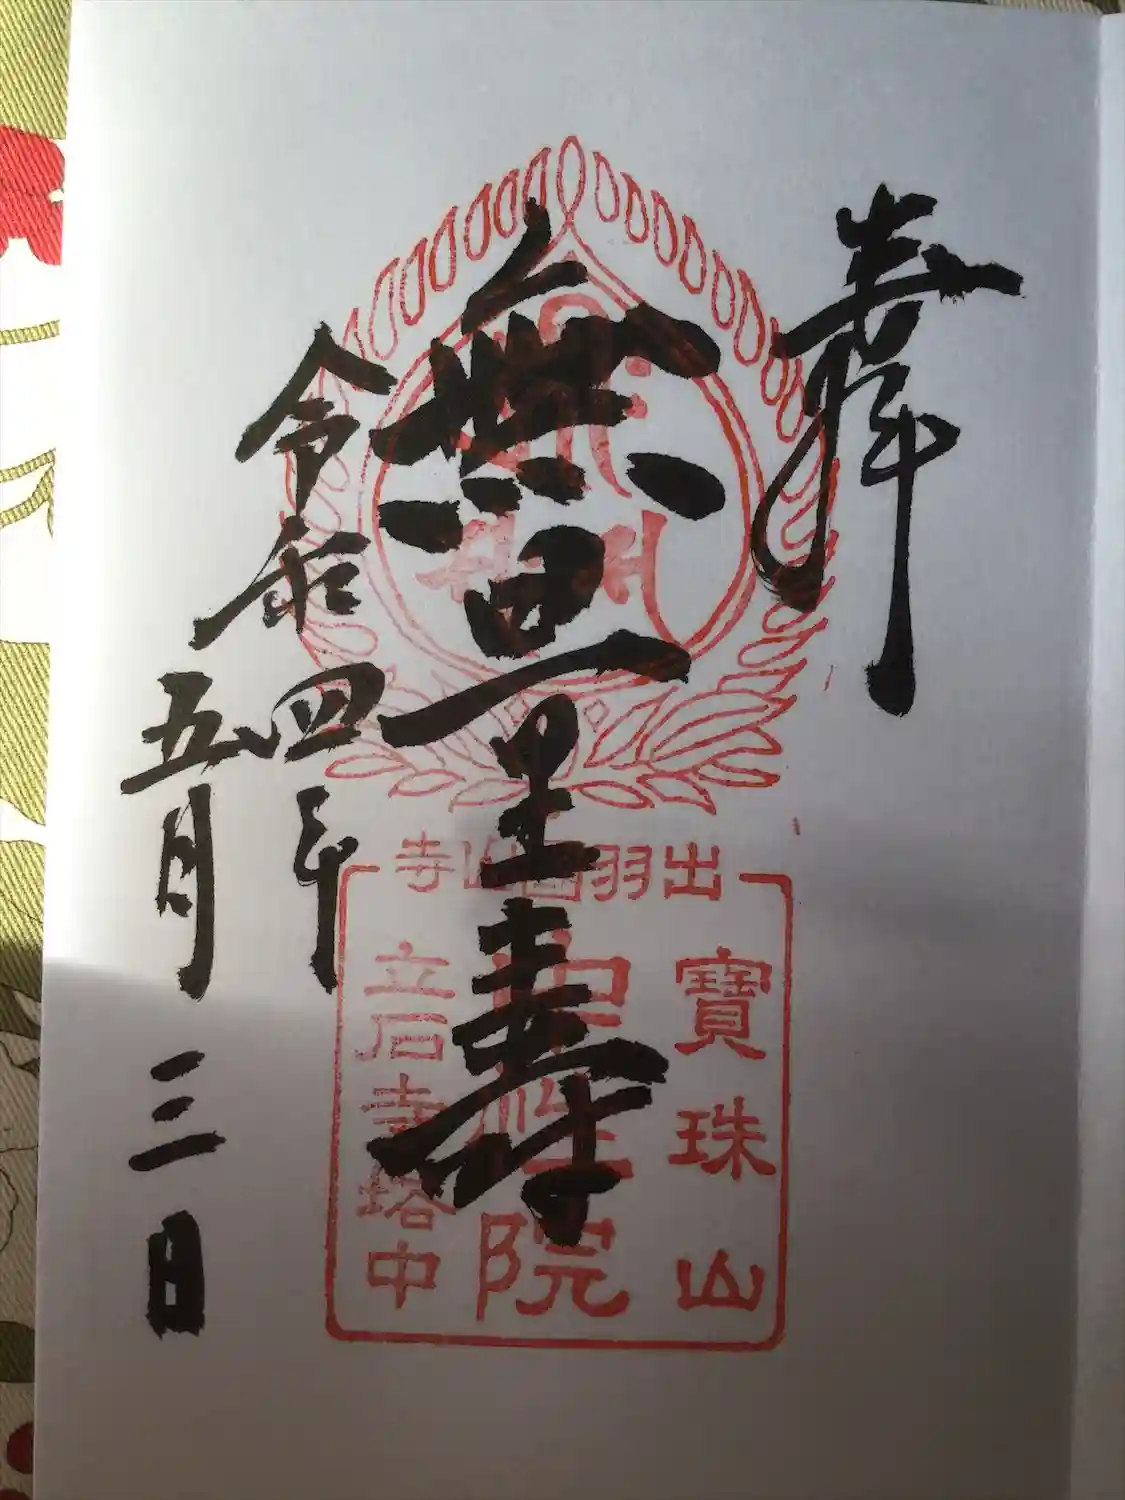 奉拝
無量壽
令和四年
五月三日
出羽國山寺
寶珠山
性院
立石寺塔中